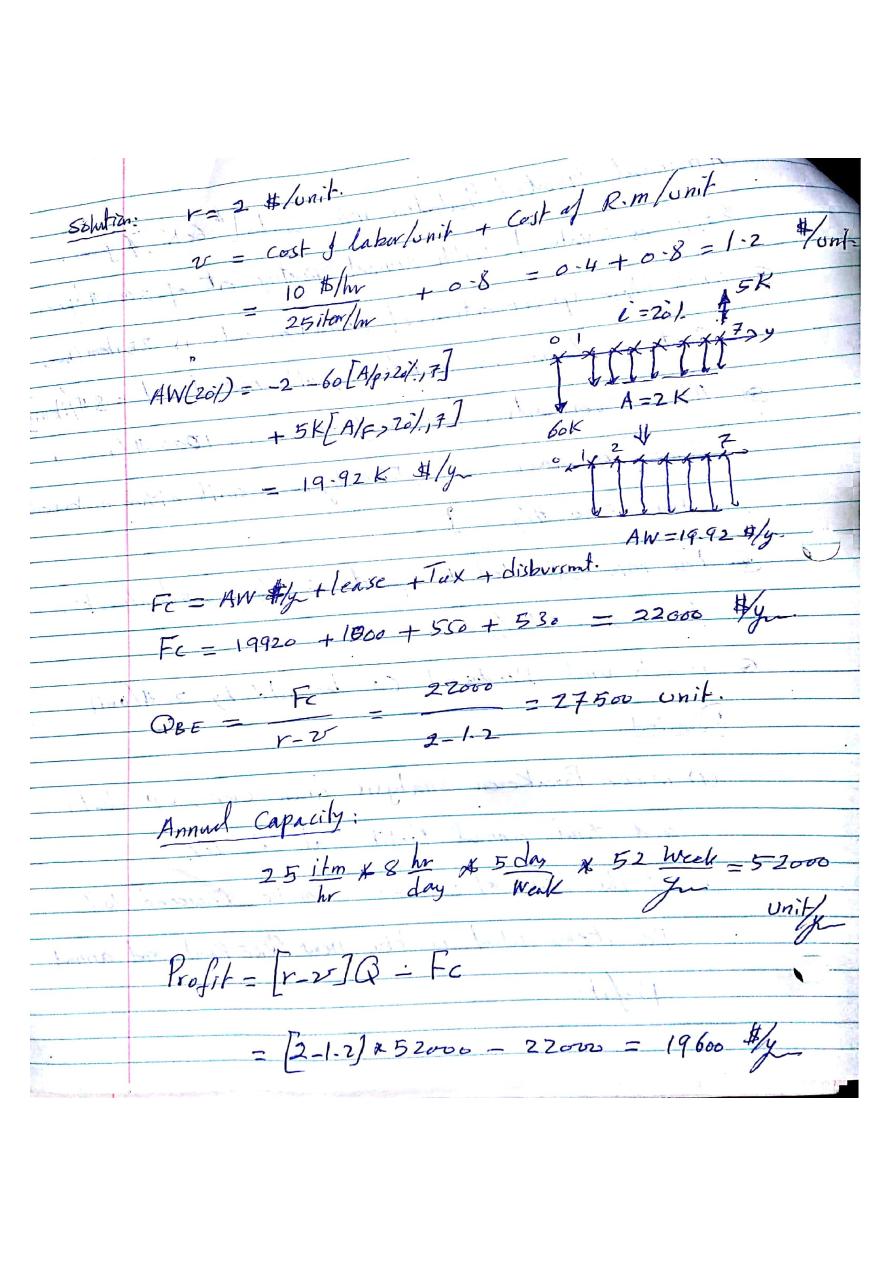 Solution: r = 2 $/unit.
v = cost of labor/unit + cost of R.m/unit
= 10 $/hr / 25 item/hr + 0.8 = 0.4 + 0.8 = 1.2 $/unit
i = 20% 5K
0 1 7 y
AW(20%) = -2 - 60[A/P, 20%, 7]
A = 2K
+ 5K[A/F, 20%, 7]
60K
0 1 2 7
= 19.92 K $/y
AW = 19.92 $/y
Fc = AW $/y + lease + Tax + disbursmt.
Fc = 19920 + 1000 + 550 + 530 = 22000 $/y
QBE = Fc / r - v = 22000 / 2 - 1.2 = 27500 unit.
Annual Capacity:
25 itm/hr * 8 hr/day * 5 day/Weak * 52 Week/year = 52000
unit/y
Profit = [r - v]Q - Fc
= [2 - 1.2] * 52000 - 22000 = 19600 $/y